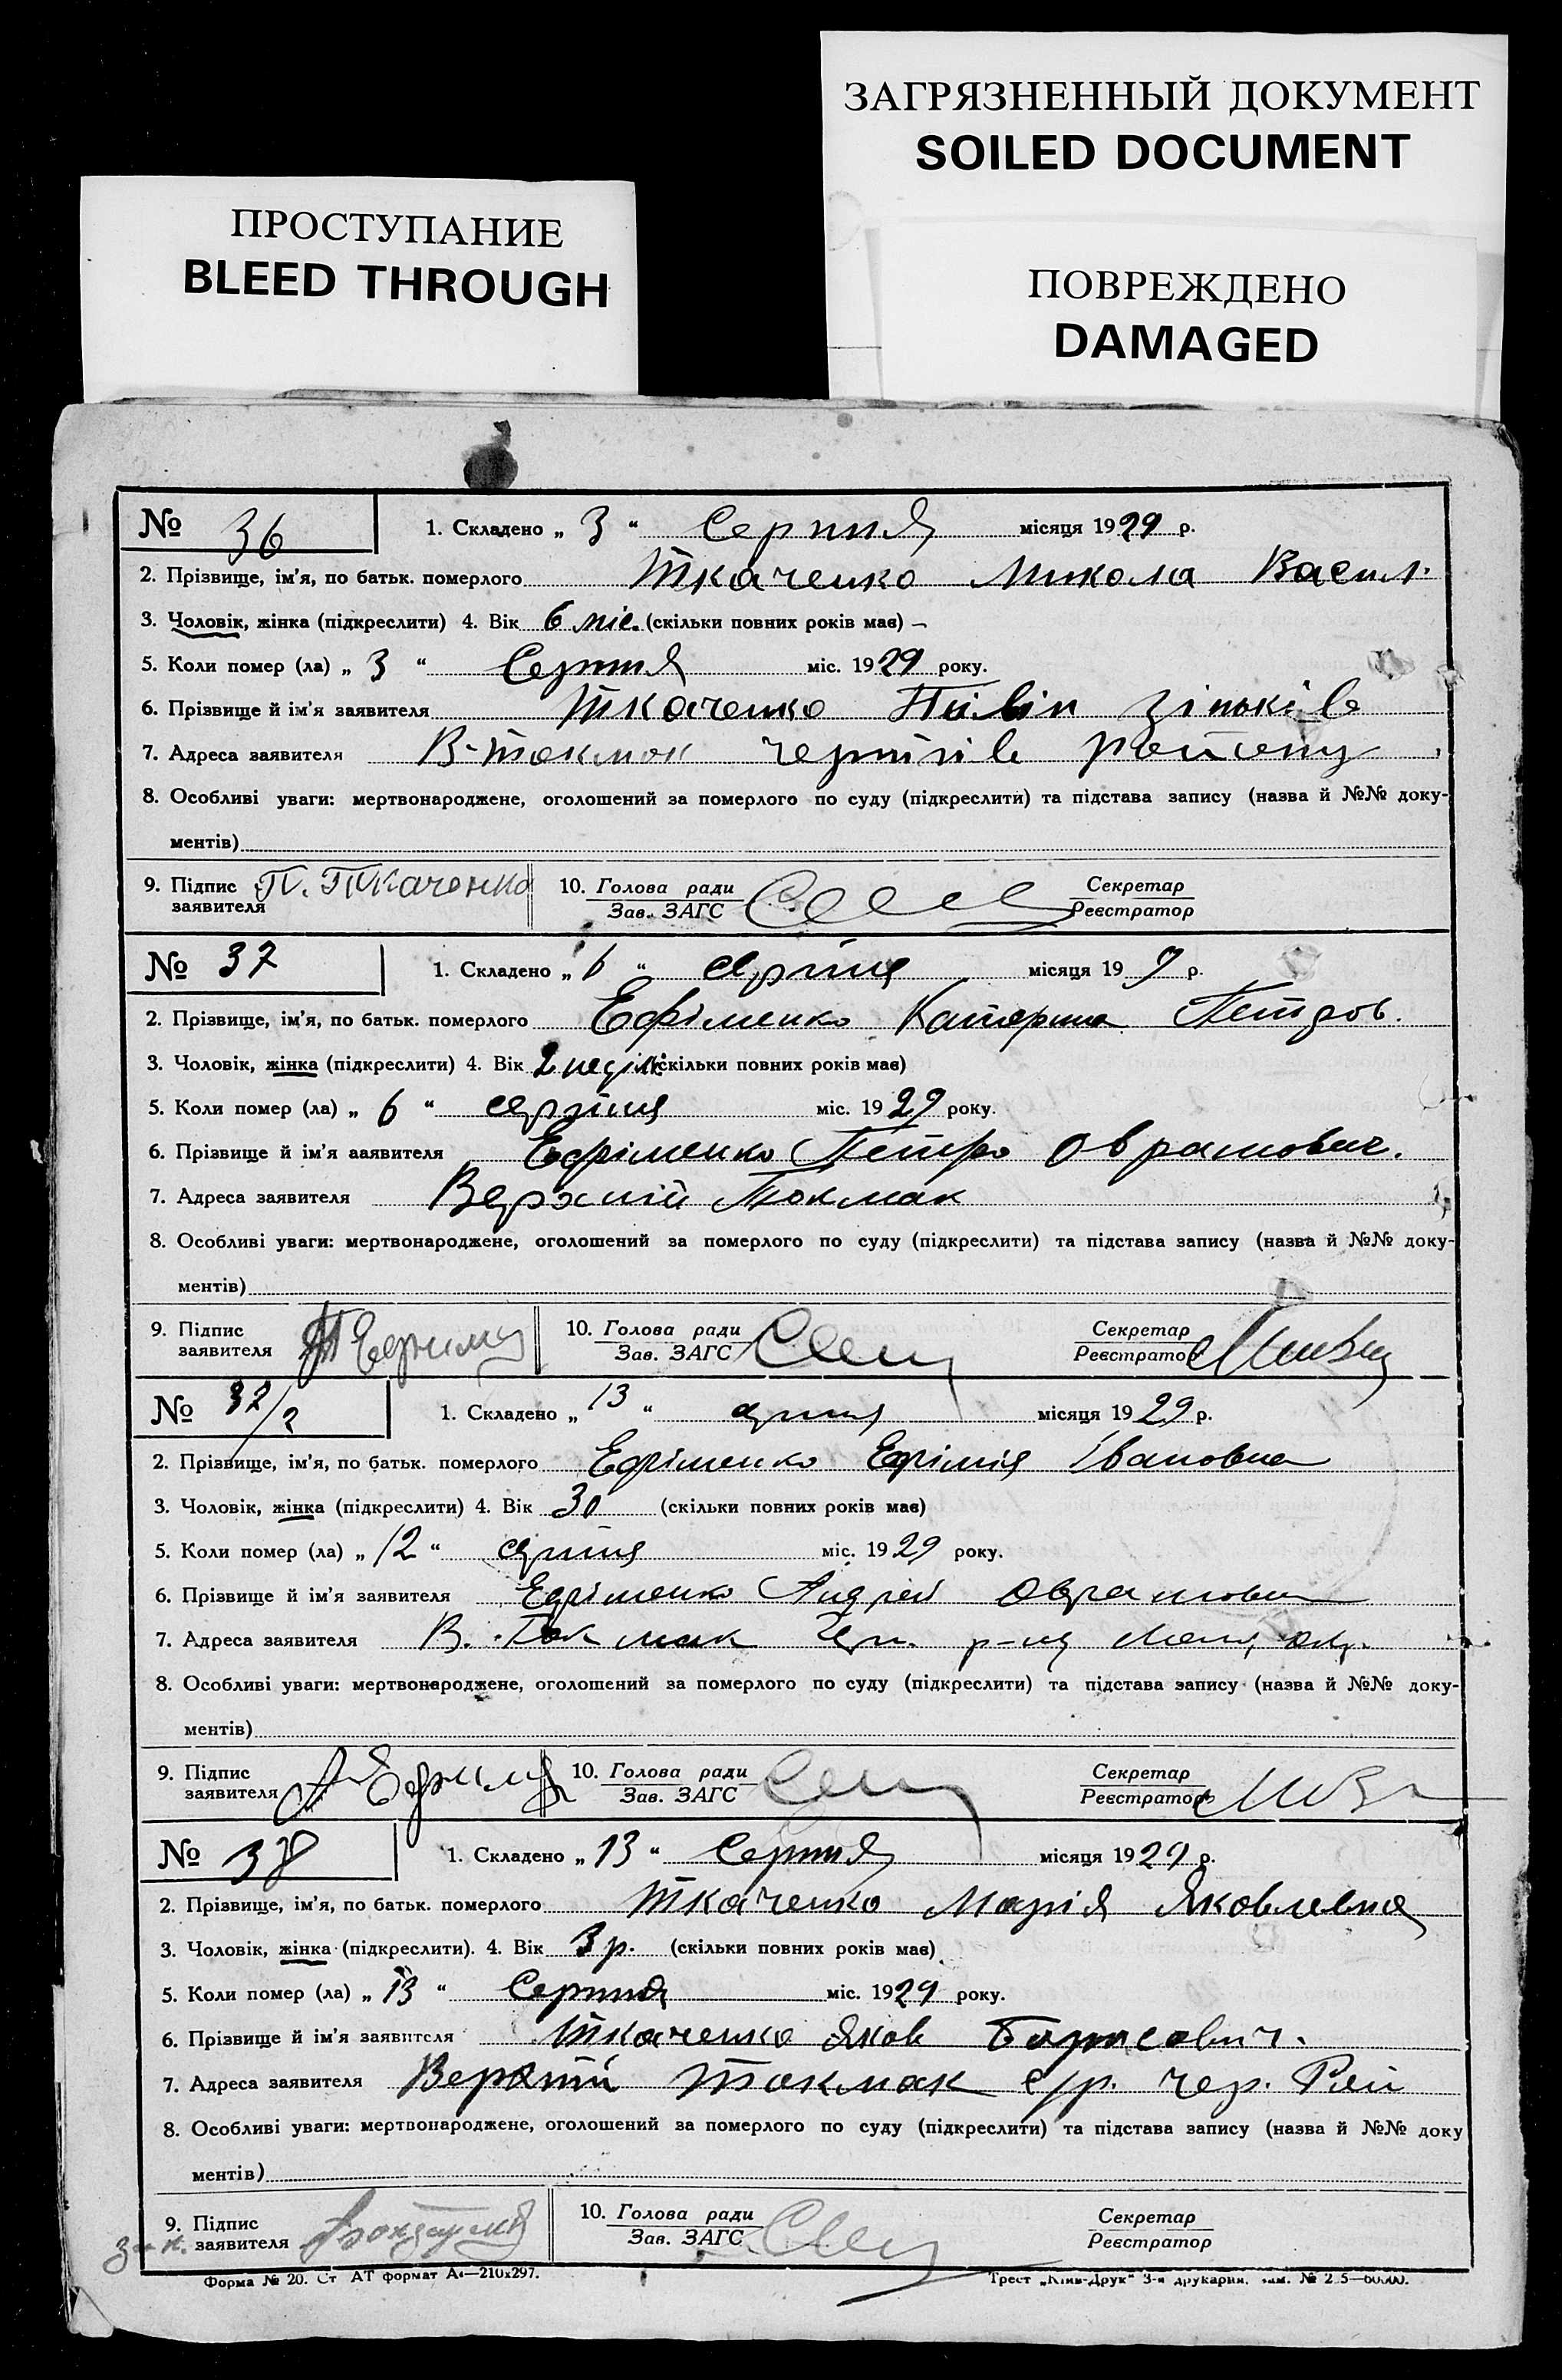 ЗАГРЯЗНЕННЫЙ ДОКУМЕНТ
SOILED DOCUMENT
ПРОСТУПАНИЕ
BLEED THROUGH
ПОВРЕЖДЕНО
DAMAGED
№ 36 1. Складено „ 3 “ Серпня місяця 1929 р.
2. Прізвище, ім'я, по батьк. померлого Ткаченко Микола Васил.
3. Чоловік, жінка (підкреслити) 4. Вік 6 міс. (скільки повних років має) –
5. Коли помер (ла) „ 3 “ Серпня міс. 1929 року.
6. Прізвище й ім'я заявителя Ткаченко
7. Адреса заявителя В-Токмак Чернігів Району
8. Особливі уваги: мертвонароджене, оголошений за померлого по суду (підкреслити) та підстава запису (назва й №№ доку-
ментів)
9. Підпис заявителя П. Ткаченко 10. Голова ради Зав. ЗАГС Секретар Реєстратор
№ 37 1. Складено „ 6 “ серпня місяця 19 9 р.
2. Прізвище, ім'я, по батьк. померлого Ефіменко Катерина Петров.
3. Чоловік, жінка (підкреслити) 4. Вік 2 неділі (скільки повних років має)
5. Коли помер (ла) „ 6 “ серпня міс. 1929 року.
6. Прізвище й ім'я заявителя Ефіменко Петро Оврамович.
7. Адреса заявителя Верхній Токмак
8. Особливі уваги: мертвонароджене, оголошений за померлого по суду (підкреслити) та підстава запису (назва й №№ доку-
ментів)
9. Підпис заявителя 10. Голова ради Зав. ЗАГС Секретар Реєстратор
№ 37/2 1. Складено „ 13 “ серпня місяця 1929 р.
2. Прізвище, ім'я, по батьк. померлого Ефіменко Ефімія Івановна
3. Чоловік, жінка (підкреслити) 4. Вік 30 (скільки повних років має)
5. Коли помер (ла) „ 12 “ серпня міс. 1929 року.
6. Прізвище й ім'я заявителя Ефіменко Андрей Оврамович
7. Адреса заявителя В. Токмак Чер. р-ну Мел. окр.
8. Особливі уваги: мертвонароджене, оголошений за померлого по суду (підкреслити) та підстава запису (назва й №№ доку-
ментів)
9. Підпис заявителя 10. Голова ради Зав. ЗАГС Секретар Реєстратор
№ 38 1. Складено „ 13 “ Серпня місяця 1929 р.
2. Прізвище, ім'я, по батьк. померлого Ткаченко Марія Яковлевна
3. Чоловік, жінка (підкреслити). 4. Вік 3 р. (скільки повних років має)
5. Коли помер (ла) „ 13 “ Серпня міс. 1929 року.
6. Прізвище й ім'я заявителя Ткаченко Яков Борисович.
7. Адреса заявителя Верхній Токмак с/р. Чер. Рай
8. Особливі уваги: мертвонароджене, оголошений за померлого по суду (підкреслити) та підстава запису (назва й №№ доку
ментів)
9. Підпис заявителя 10. Голова ради Зав. ЗАГС Секретар Реєстратор
Форма № 20. Ст АТ формат А4—210x297. Трест „Київ-Друк“ 3-я друкарня.